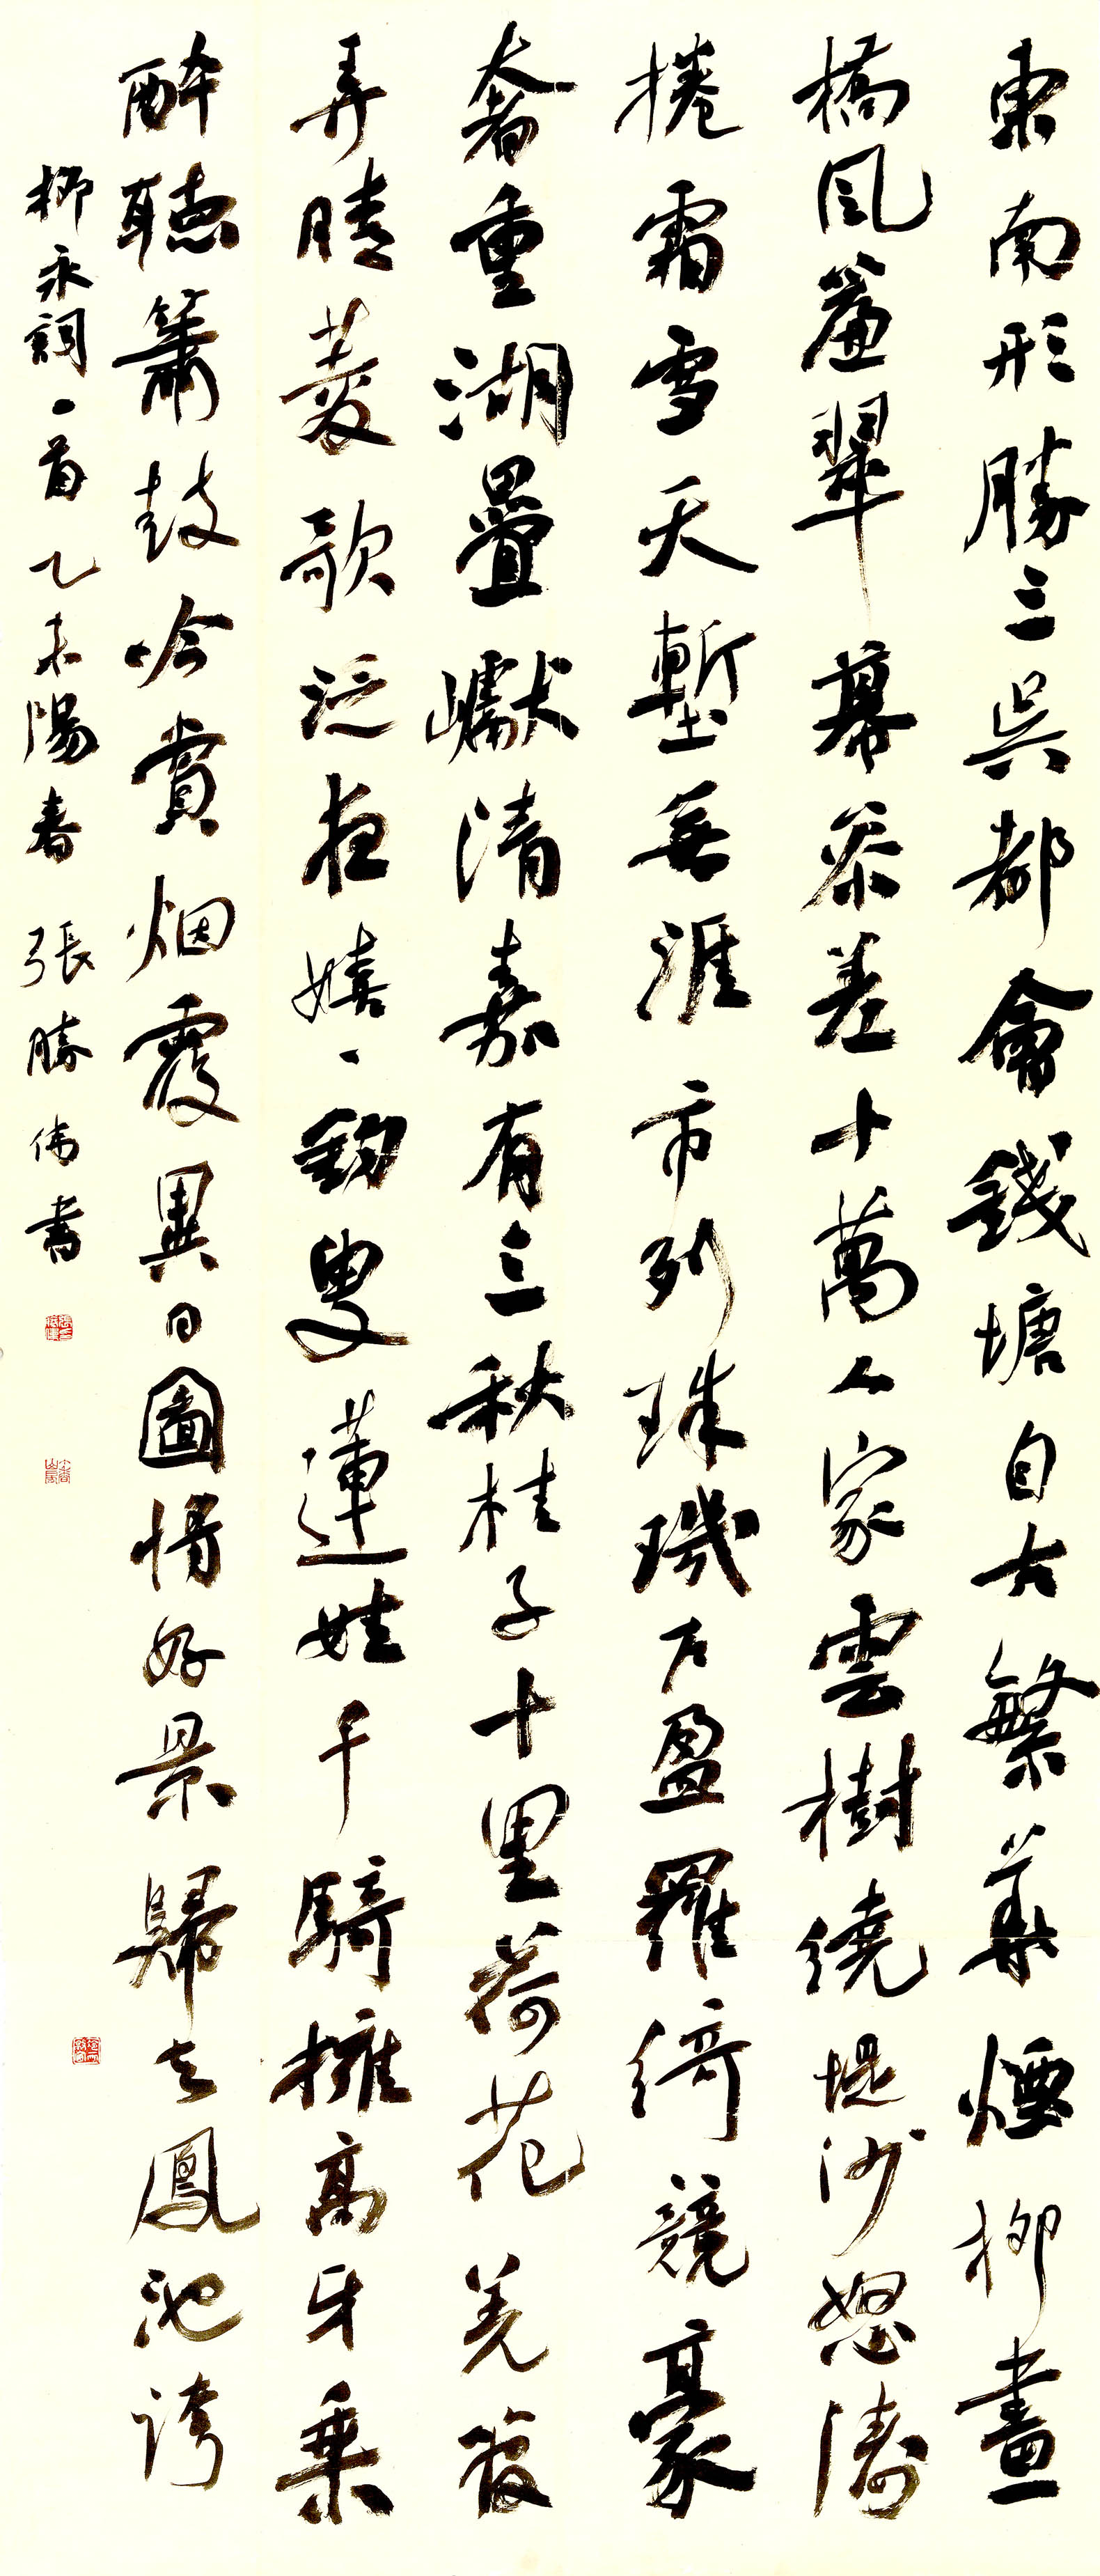 東南形勝三吳都會錢塘自古繁華煙柳畫
橋風簾翠幕參差十萬人家雲樹繞堤沙怒濤
捲霜雪天塹無涯市列珠璣戶盈羅綺競豪
奢重湖疊巘清嘉有三秋桂子十里荷花羌管
弄晴菱歌泛夜嬉、釣叟蓮娃千騎擁高牙乘
醉聽簫鼓吟賞烟霞異日圖將好景歸去鳳池誇
柳永詞一首乙未陽春張勝偉書